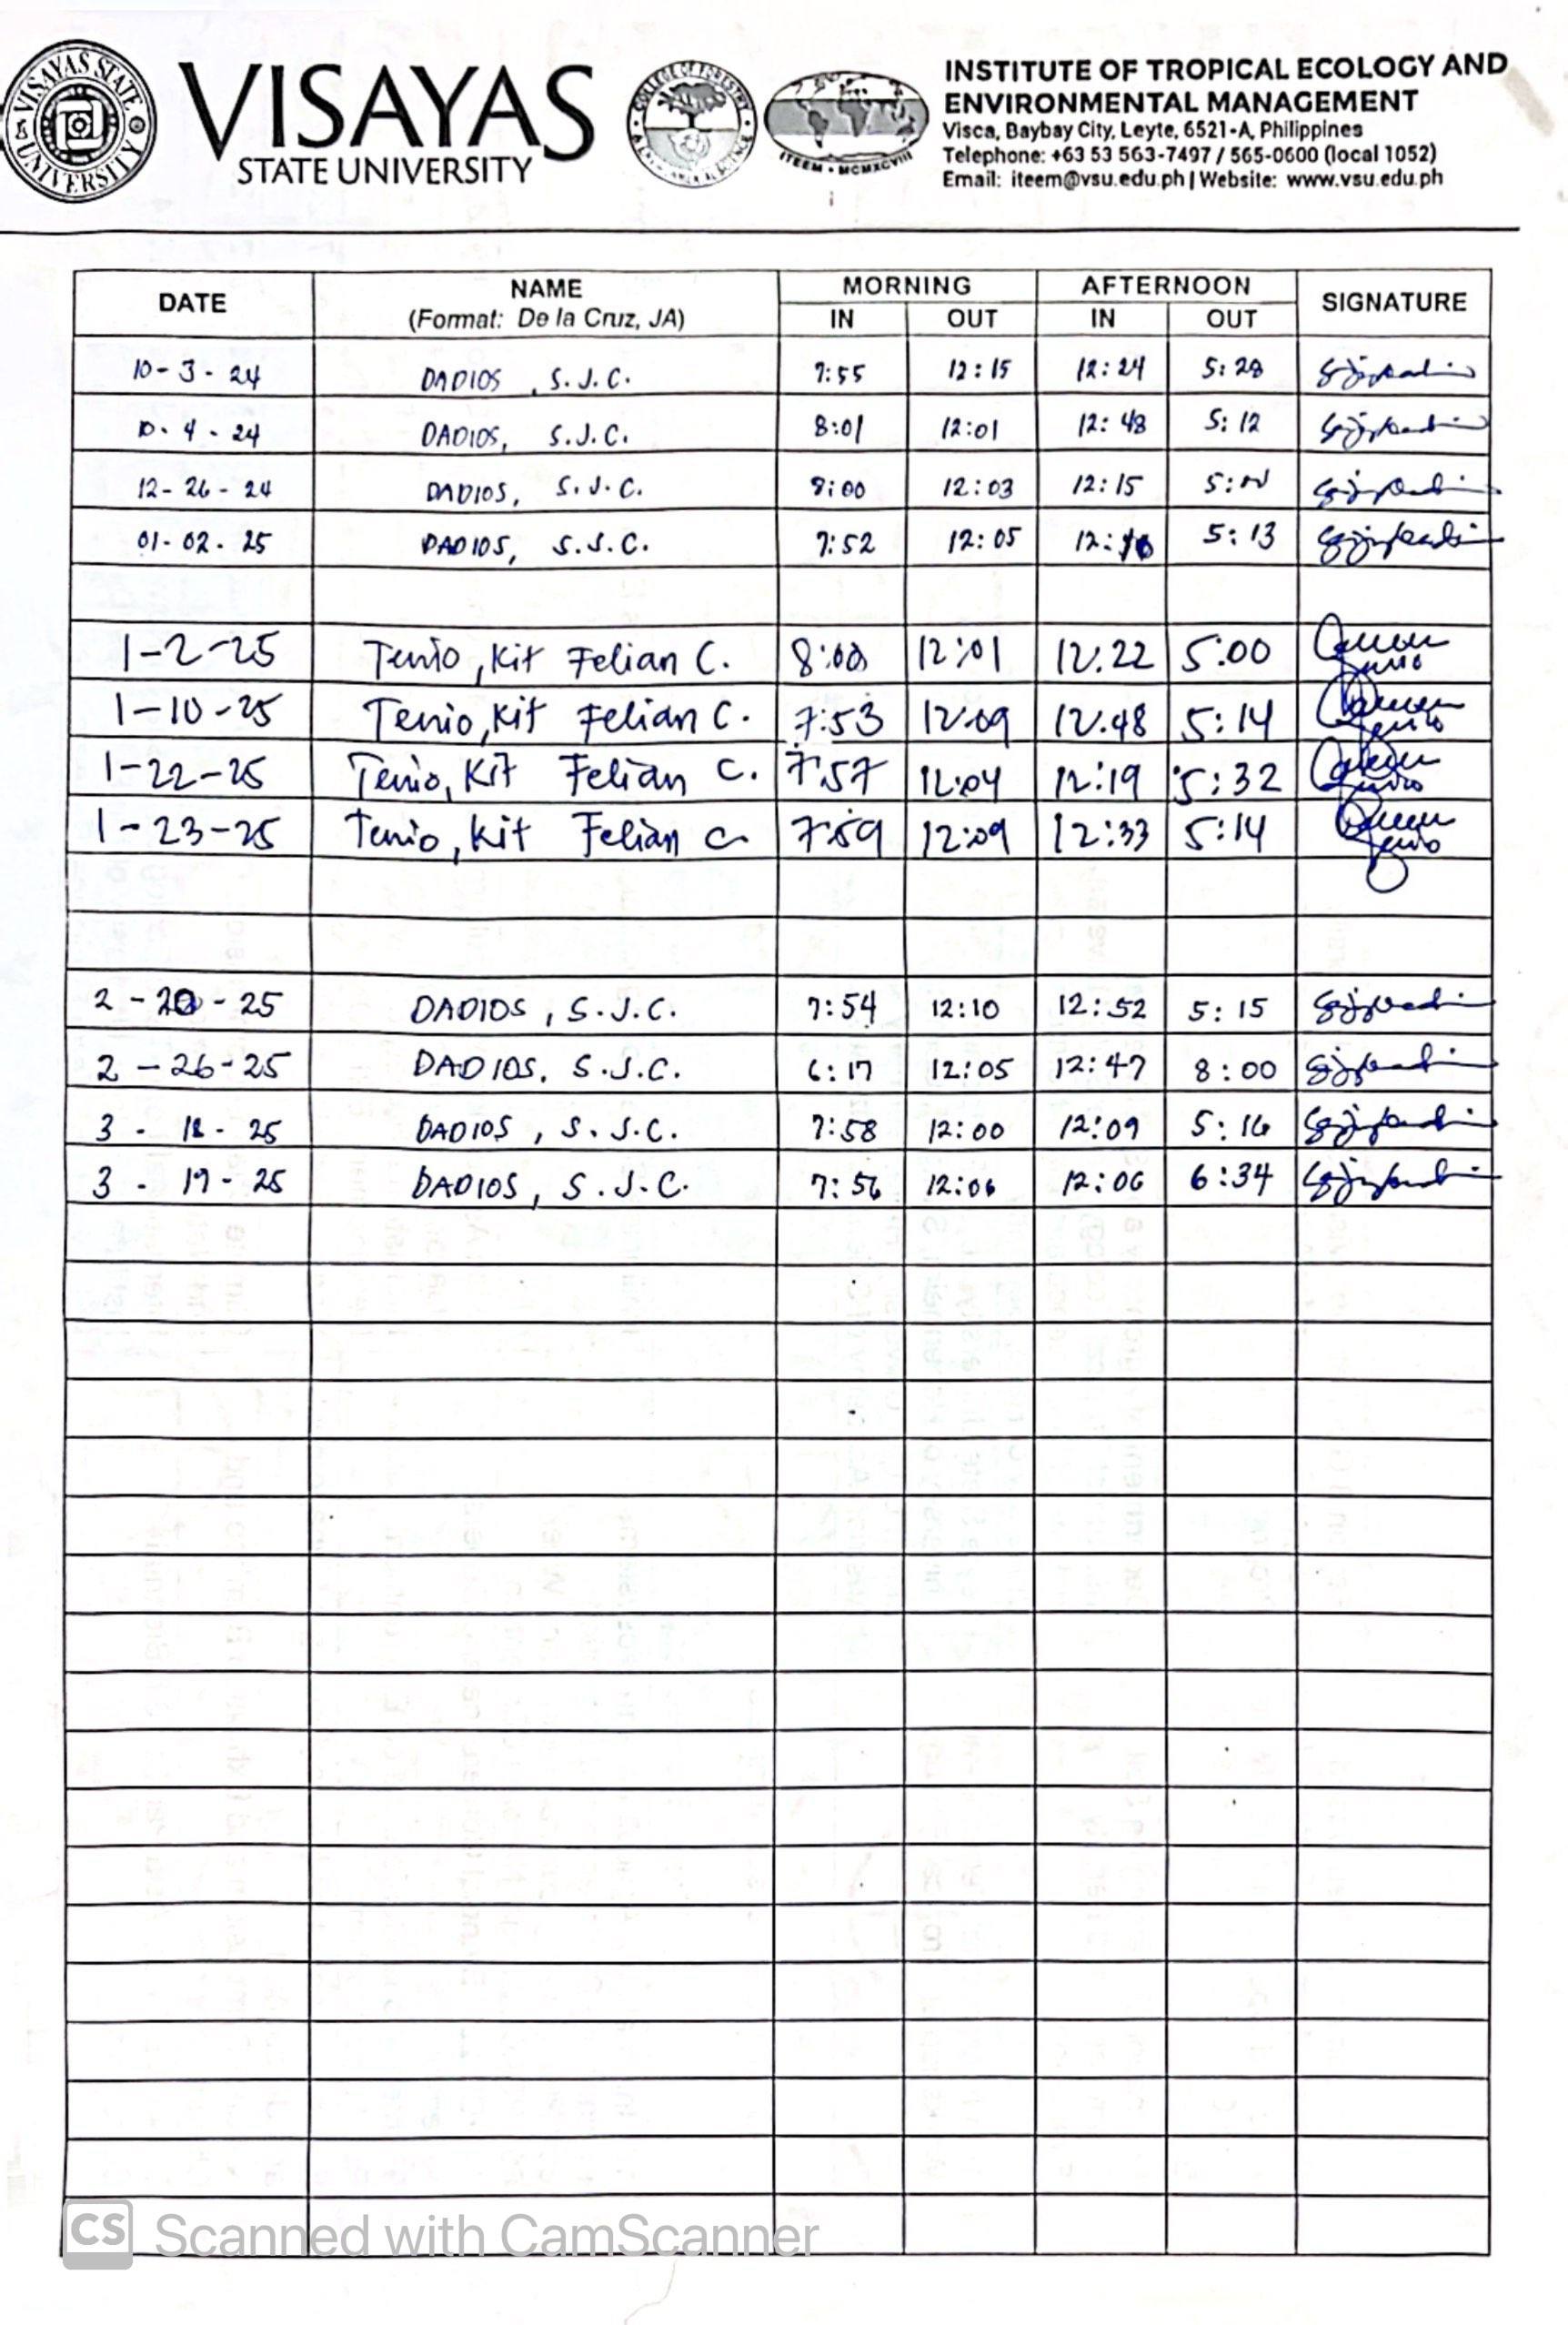 VISAYAS STATE UNIVERSITY
VISAYAS
STATE UNIVERSITY
COLLEGE OF FORESTRY
ITEEM • MCMXCVIII
INSTITUTE OF TROPICAL ECOLOGY AND
ENVIRONMENTAL MANAGEMENT
Visca, Baybay City, Leyte, 6521-A, Philippines
Telephone: +63 53 563-7497 / 565-0600 (local 1052)
Email: iteem@vsu.edu.ph | Website: www.vsu.edu.ph
DATE NAME (Format: De la Cruz, JA) MORNING AFTERNOON SIGNATURE
IN OUT IN OUT
10-3-24 DADIOS, S.J.C. 7:55 12:15 12:24 5:28
10-4-24 DADIOS, S.J.C. 8:01 12:01 12:48 5:12
12-26-24 DADIOS, S.J.C. 8:00 12:03 12:15
01-02-25 DADIOS, S.J.C. 7:52 12:05 5:13
1-2-25 Tenio, Kit Felian C. 8:00 12:01 12:22 5:00
1-10-25 Tenio, Kit Felian C. 7:53 12:09 12:48 5:14
1-22-25 Tenio, Kit Felian C. 7:57 12:04 12:19 5:32
1-23-25 Tenio, Kit Felian C. 7:59 12:09 12:33 5:14
2-20-25 DADIOS, S.J.C. 7:54 12:10 12:52 5:15
2-26-25 DADIOS, S.J.C. 6:17 12:05 12:47 8:00
3-18-25 DADIOS, S.J.C. 7:58 12:00 12:09 5:16
3-19-25 DADIOS, S.J.C. 7:56 12:06 12:06 6:34
CS Scanned with CamScanner